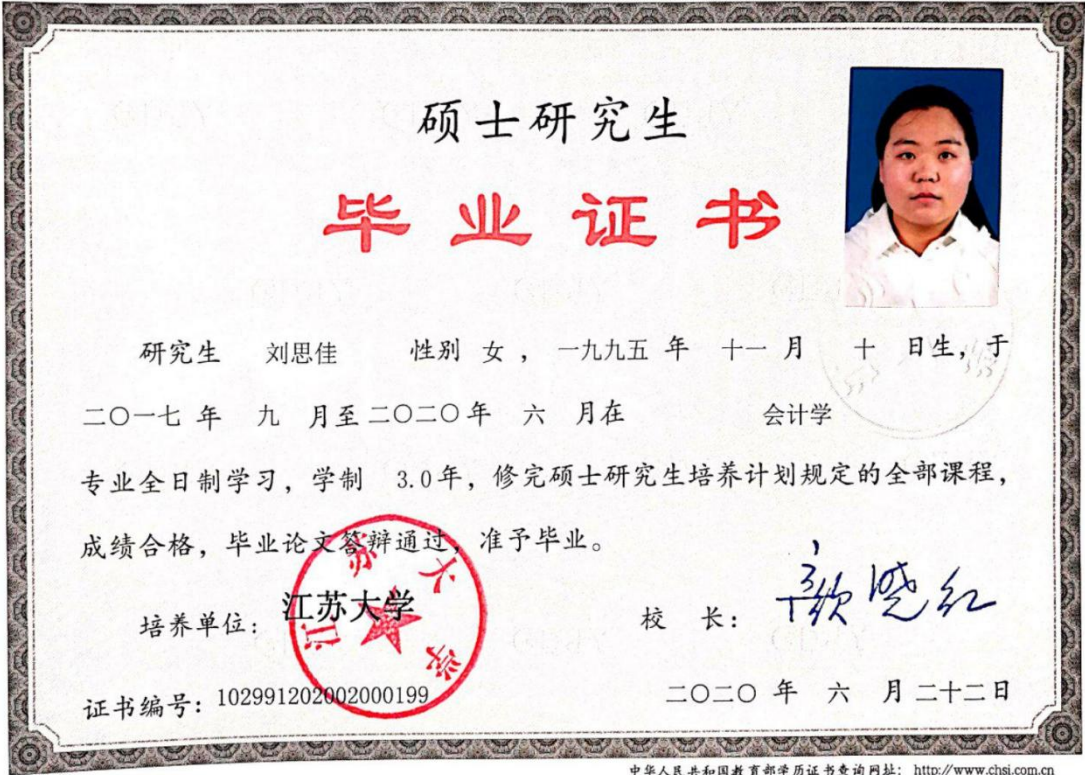 硕士研究生
毕业证书
研究生 刘思佳 性别 女 , 一九九五 年 十一 月 十 日生, 于
二〇一七 年 九 月至二〇二〇年 六 月在 会计学
专业全日制学习, 学制 3.0年, 修完硕士研究生培养计划规定的全部课程,
成绩合格, 毕业论文答辩通过, 准予毕业。
培养单位: 江苏大学
江苏大学
校 长: 颜晓红
证书编号: 102991202002000199
二〇二〇 年 六 月二十二日
中华人民共和国教育部学历证书查询网址: http://www.chsi.com.cn